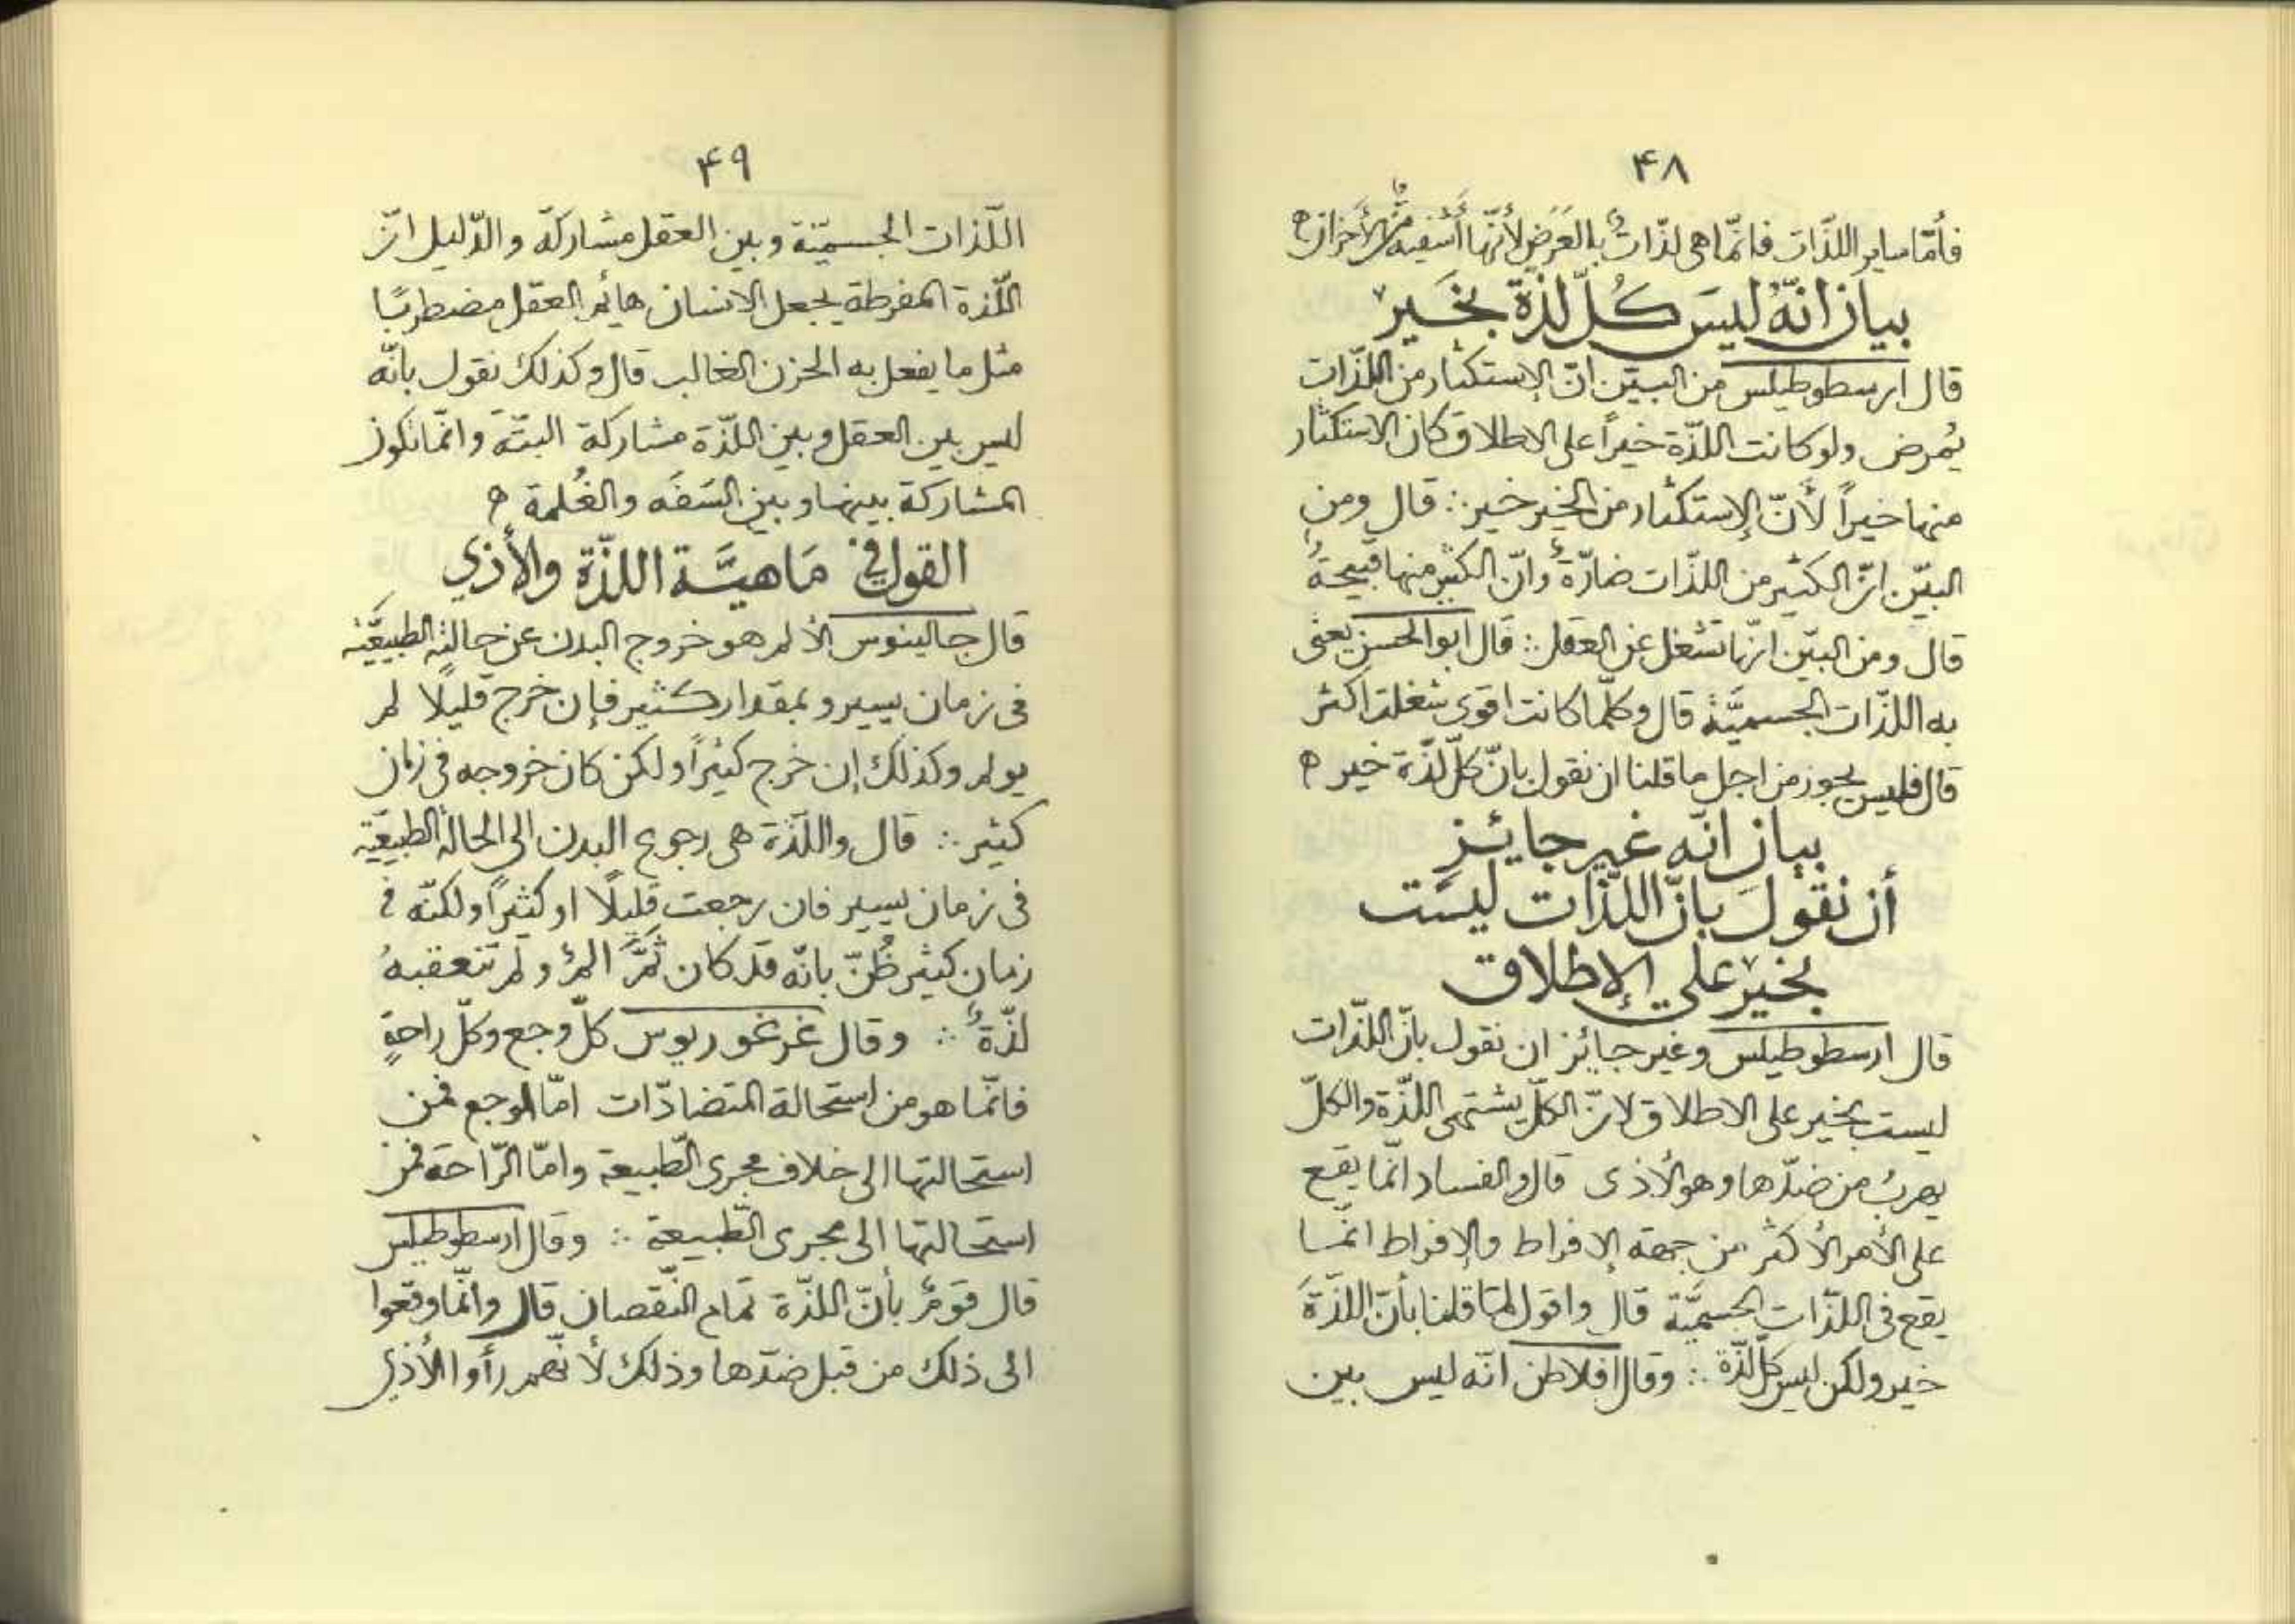 ۴۸
فأمّا ساير اللذّات فانّما هى لذّاتٌ بالعَرَضِ لأنّها أشفيه من الأحزان ه
بيان انّهُ ليسَ كُلّ لذّة بخَير
قال ارسطوطيلس من البيّن انّ الإستكثار من اللذّات
يُمرض ولو كانت اللذّة خيراً على الاطلاق كان الاستكثار
منها خيراً لأنّ الإستكثار من الخير خير ∴ قال ومن
البيّن انّ الكثير من اللذّات ضارّةٌ وانّ الكثير منها قبيحةٌ
قال ومن البيّن انّها تشغل عن العقل ∴ قال ابو الحسن يعنى
به اللذّات الجسميَّة قال وكلّما كانت اقوى شغلت اكثر
قال فليس يجوز من اجل ما قلنا ان نقول بانّ كلّ لذّة خير ه
بيان انّه غير جايئز
أن نقولَ بانّ اللذّات ليسَت
بخَير على الإطلاق
قال ارسطوطيلس وغير جايئز ان نقول بانّ اللذّات
ليست بخير على الاطلاق لانّ الكلّ يشتهى اللذّة والكلّ
يهربُ من ضدّها وهو الأذى قال والفساد انّما يقع
على الأمر الأكثر من جهة الإفراط والإفراط انّما
يقع فى اللذّات الجسميَّة قال واقول لمّا قلنا بأنّ اللذّةَ
خير ولكن ليس كلّ لذّة ∴ وقال افلاطن انّه ليس بين
۴۹
اللّذات الجسميّة وبين العقل مشاركة والدّليل انّ
اللّذة المفرطة يجعل الانسان هائم العقل مضطربًا
مثل ما يفعل به الحزن الغالب قال وكذلك نقول بانّه
ليس بين العقل وبين اللذّة مشاركة البتّةَ وانّما تكون
المشاركة بينها وبين السَفَه والغُلمة ه
القول فى مَاهيَّة اللذّة والأذي
قال جالينوس الألم هو خروج البدن عن حالته الطبيعيّة
فى زمان يسير و بمقدار كثير فإن خرج قليلًا لم
يولم وكذلك إن خرج كثيرًا ولكن كان خروجه فى زمان
كثير ∴ قال واللذّة هى رجوع البدن الى الحالة الطبيعيّة
فى زمان يسير فان رجعت قليلًا او كثيرًا ولكنّه فى
زمان كثير ظُنّ بانّه قد كان ثَمَّ المٌ ولم تتعقبهُ
لذّةٌ ∴ وقال غرغوريوس كلّ وجع وكلّ راحةٍ
فانّما هو من استحالة المتضادّات امّا الوجع فمن
استحالتها الى خلاف مجرى الطّبيعة وامّا الرّاحة فمن
استحالتها الى مجرى الطّبيعة ∴ وقال ارسطوطيلس
قال قومٌ بأنّ اللذّة تمام النّقصان قال وانّما وقعوا
الى ذلك من قبل ضدّها وذلك لأنّهم رأوا الأذي